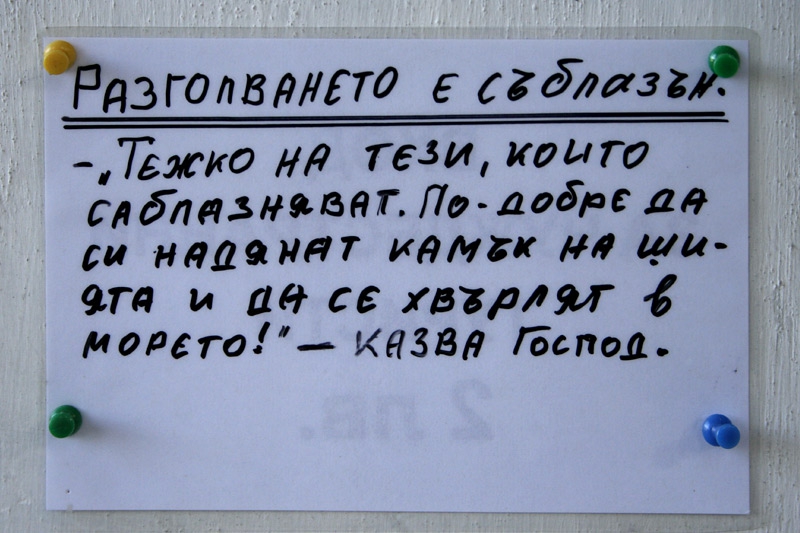 Разголването е съблазън.
-„Тежко на тези, които
саблазняват. По-добре да
си надянат камък на ши-
ята и да се хвърлят в
морето!" – казва Господ.
2 лв.